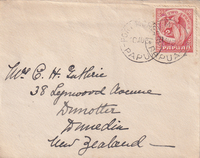 PAPUA
PAPUA
Mrs C. H. Guthrie
38 Lynwood Avenue
Dunotter
Dunedin
New Zealand